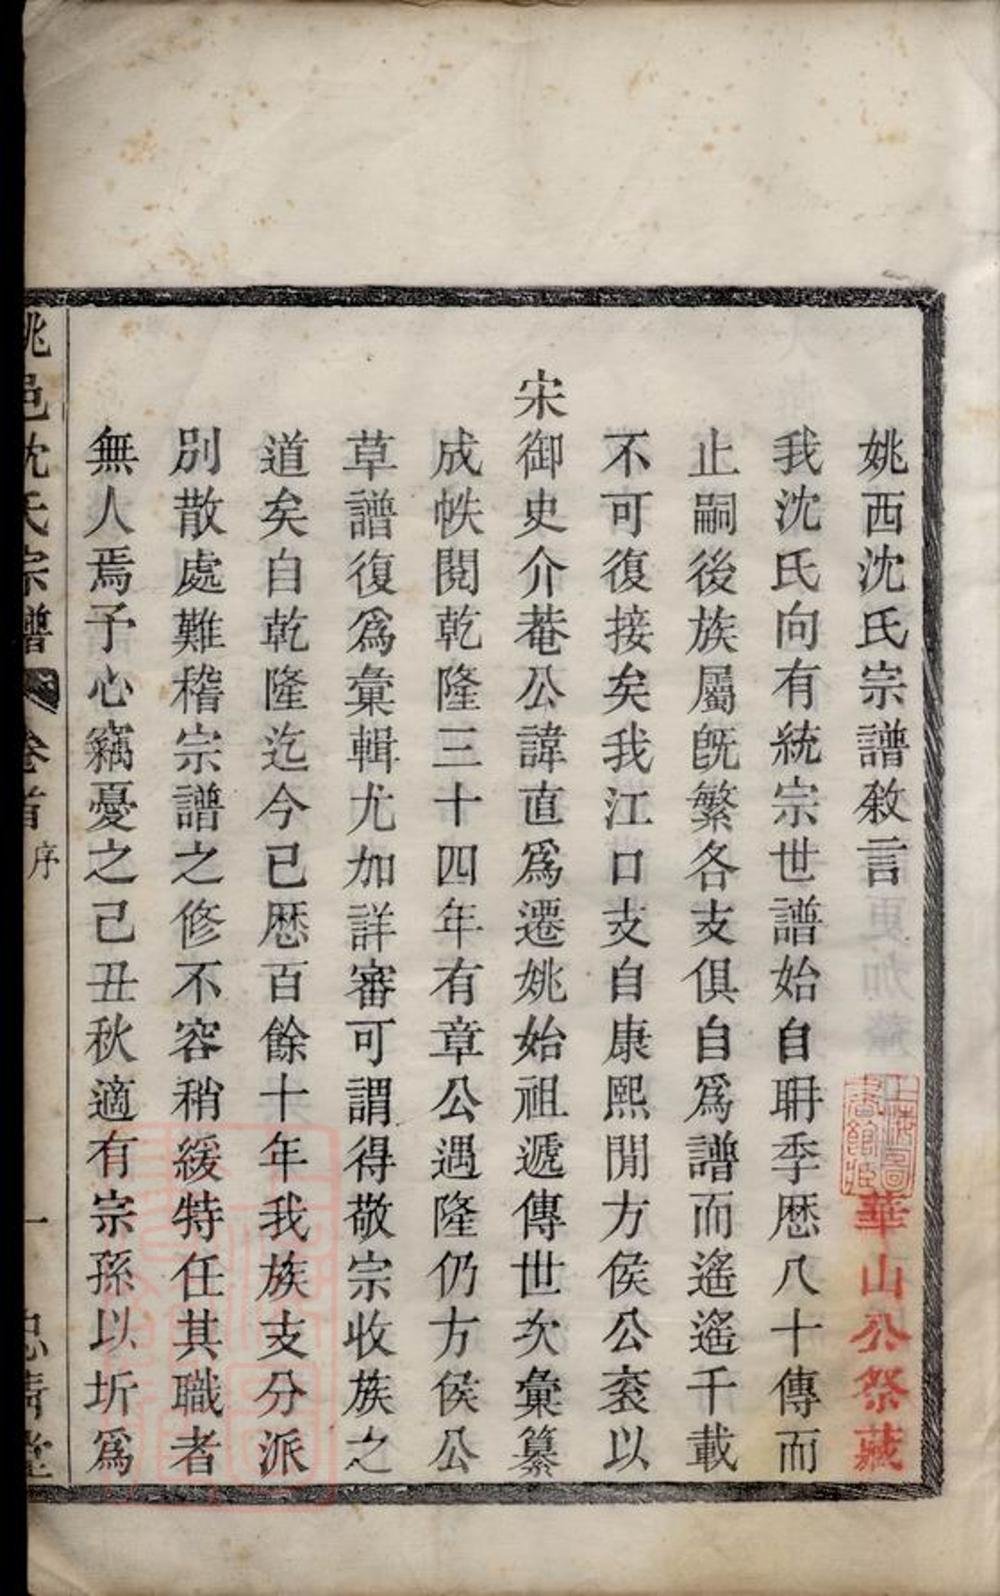 姚西沈氏宗譜敘言
華山公祭藏
上海圖書館藏
我沈氏向有統宗世譜始自聃季歷八十傳而
止嗣後族屬旣繁各支俱自爲譜而遙遙千載
不可復接矣我江口支自康熙閒方侯公袠以
宋御史介菴公諱直爲遷姚始祖遞傳世次彙纂
成帙閱乾隆三十四年有章公遇隆仍方侯公
草譜復爲彙輯尤加詳審可謂得敬宗收族之
道矣自乾隆迄今已歷百餘十年我族支分派
別散處難稽宗譜之修不容稍緩特任其職者
無人焉予心竊憂之己丑秋適有宗孫以圻爲
姚邑沈氏宗譜 卷首 序 一 忠清堂